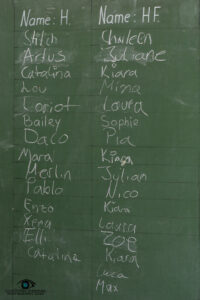 Name: H.
Stitch
Artus
Catalina
Lou
Loriot
Bailey
Daco
Mara
Merlin
Pablo
Enzo
Xena
Elli
Catalina
Name: HF.
Juliane
Kiara
Mina
Laura
Sophie
Pia
Kiara
Julian
Nico
Kiara
Laura
ZOE
Kiara
Luca
Max